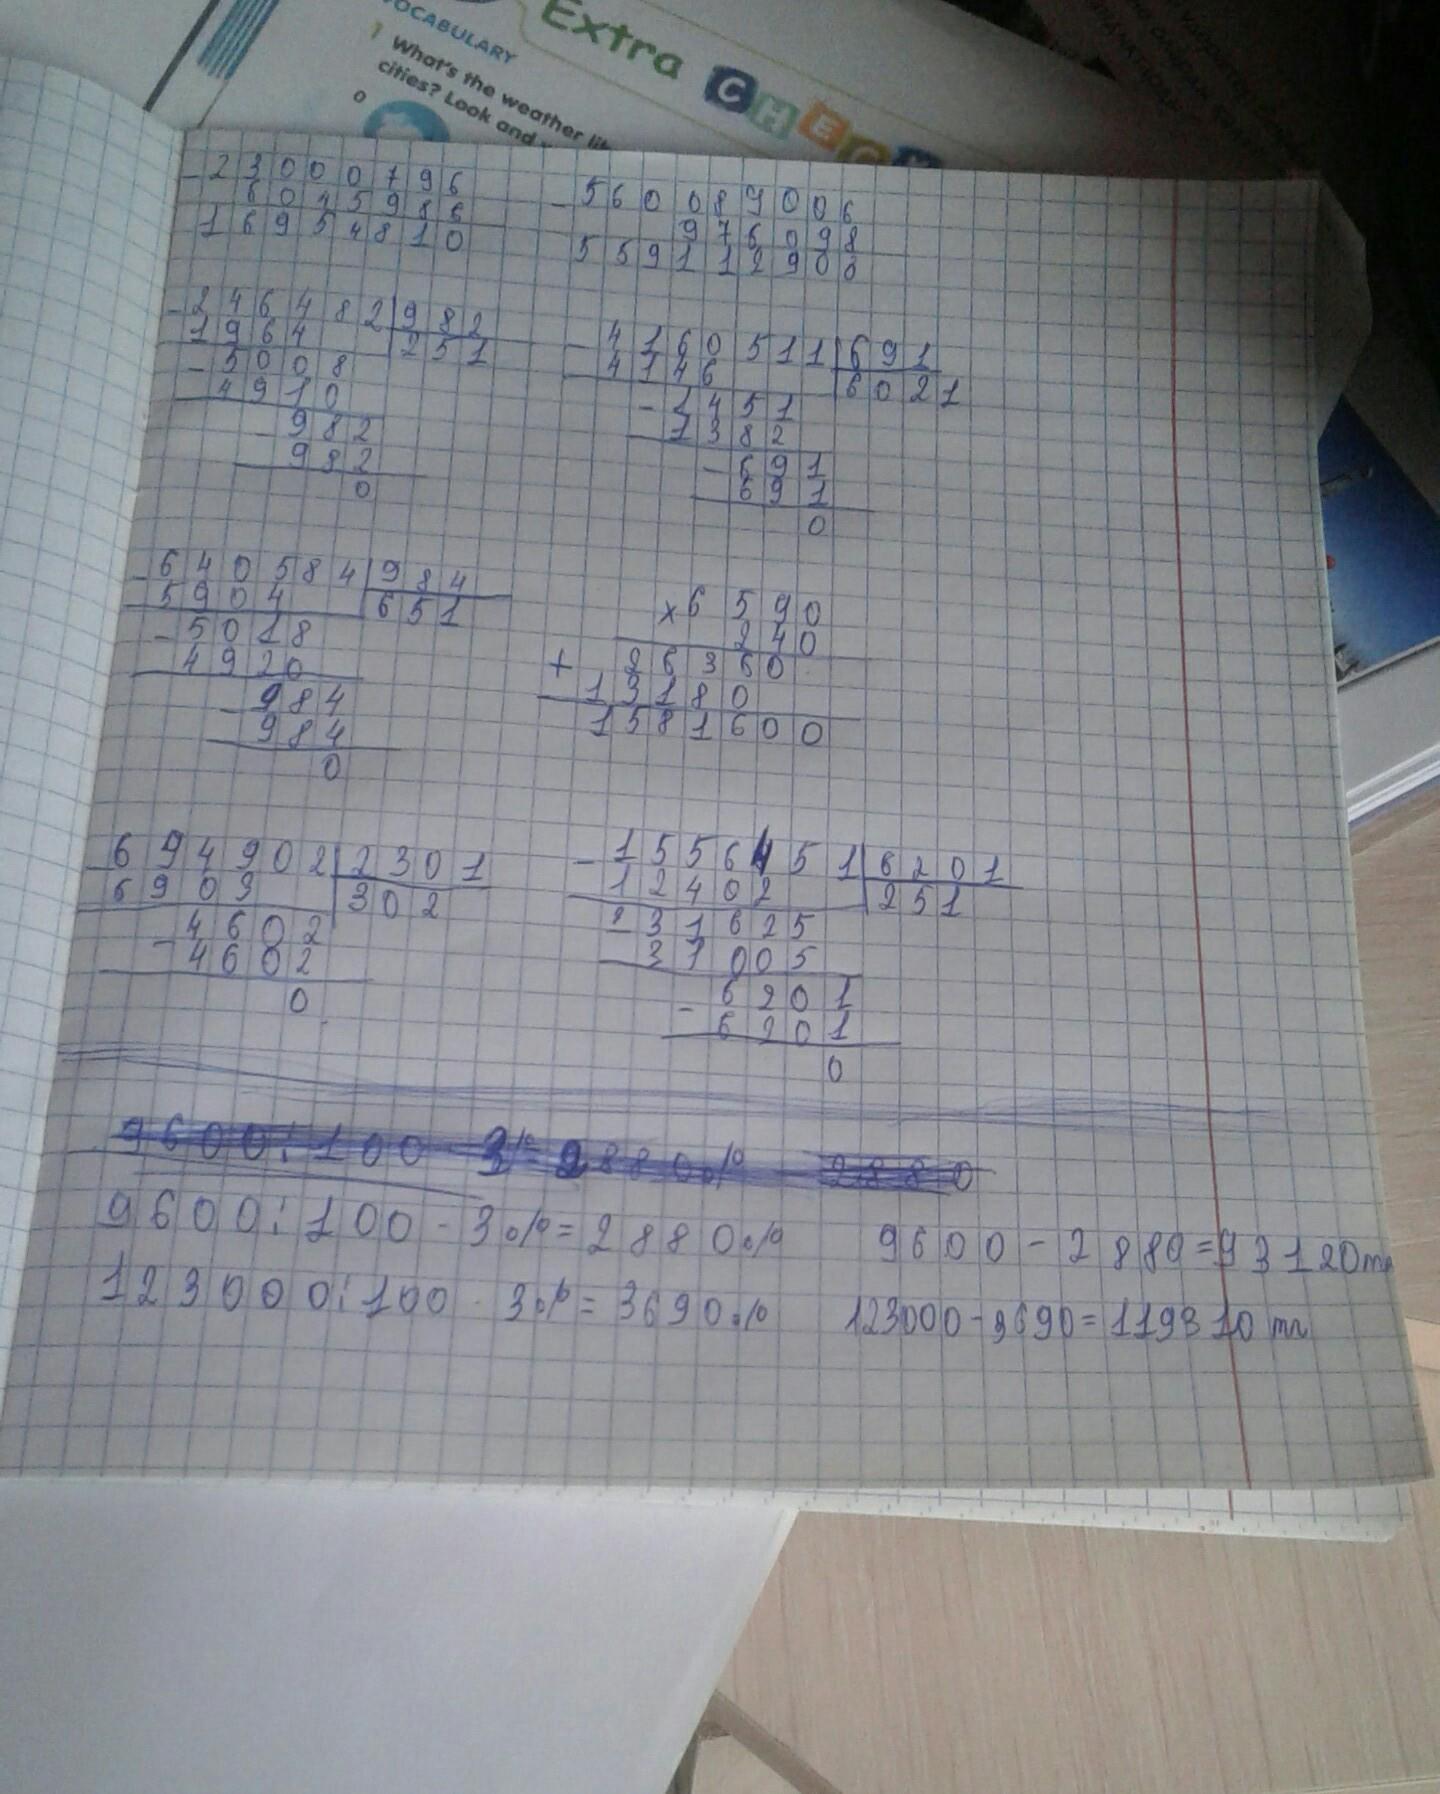 Extra CHEC
VOCABULARY
1 What's the weather lik
cities? Look and
0
-23000796
6045986
16954810
-560089006
976098
559112908
-246482|982
1964 251
-5008
4910
-982
982
0
-4160511|691
4146 6021
-1451
1382
-691
691
0
-640584|984
5904 651
-5018
4920
-984
984
0
×6590
240
+26360
13180
1581600
-694902|2301
6903 302
-4602
4602
0
-1556451|6201
12402 251
-31625
31005
-6201
6201
0
9600:100 3%=2880% 2880
9600:100 · 3%=2880% 9600-2880=93120тг
123000:100 · 3%=3690% 123000-3690=119310 тг